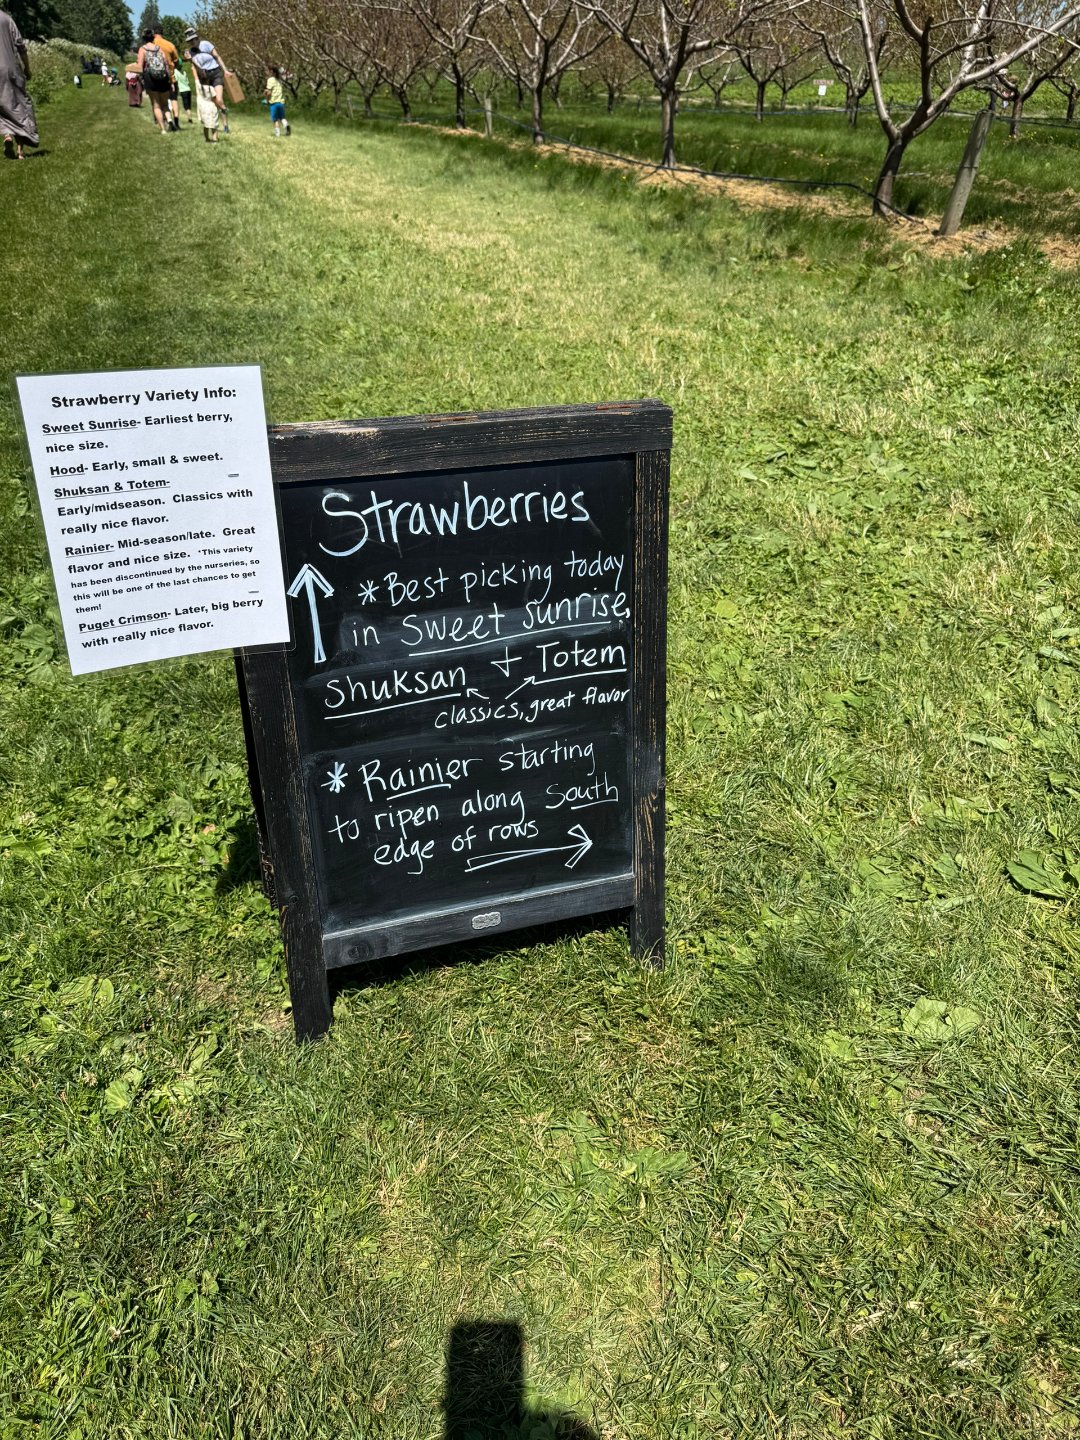 Strawberry Variety Info:
Sweet Sunrise- Earliest berry,
nice size.
Hood- Early, small & sweet.
Shuksan & Totem-
Early/midseason. Classics with
really nice flavor.
Rainier- Mid-season/late. Great
flavor and nice size. *This variety
has been discontinued by the nurseries, so
this will be one of the last chances to get
them!
Puget Crimson- Later, big berry
with really nice flavor.
Strawberries
*Best picking today
in Sweet Sunrise,
Shuksan + Totem
classics, great flavor
* Rainier starting
to ripen along South
edge of rows